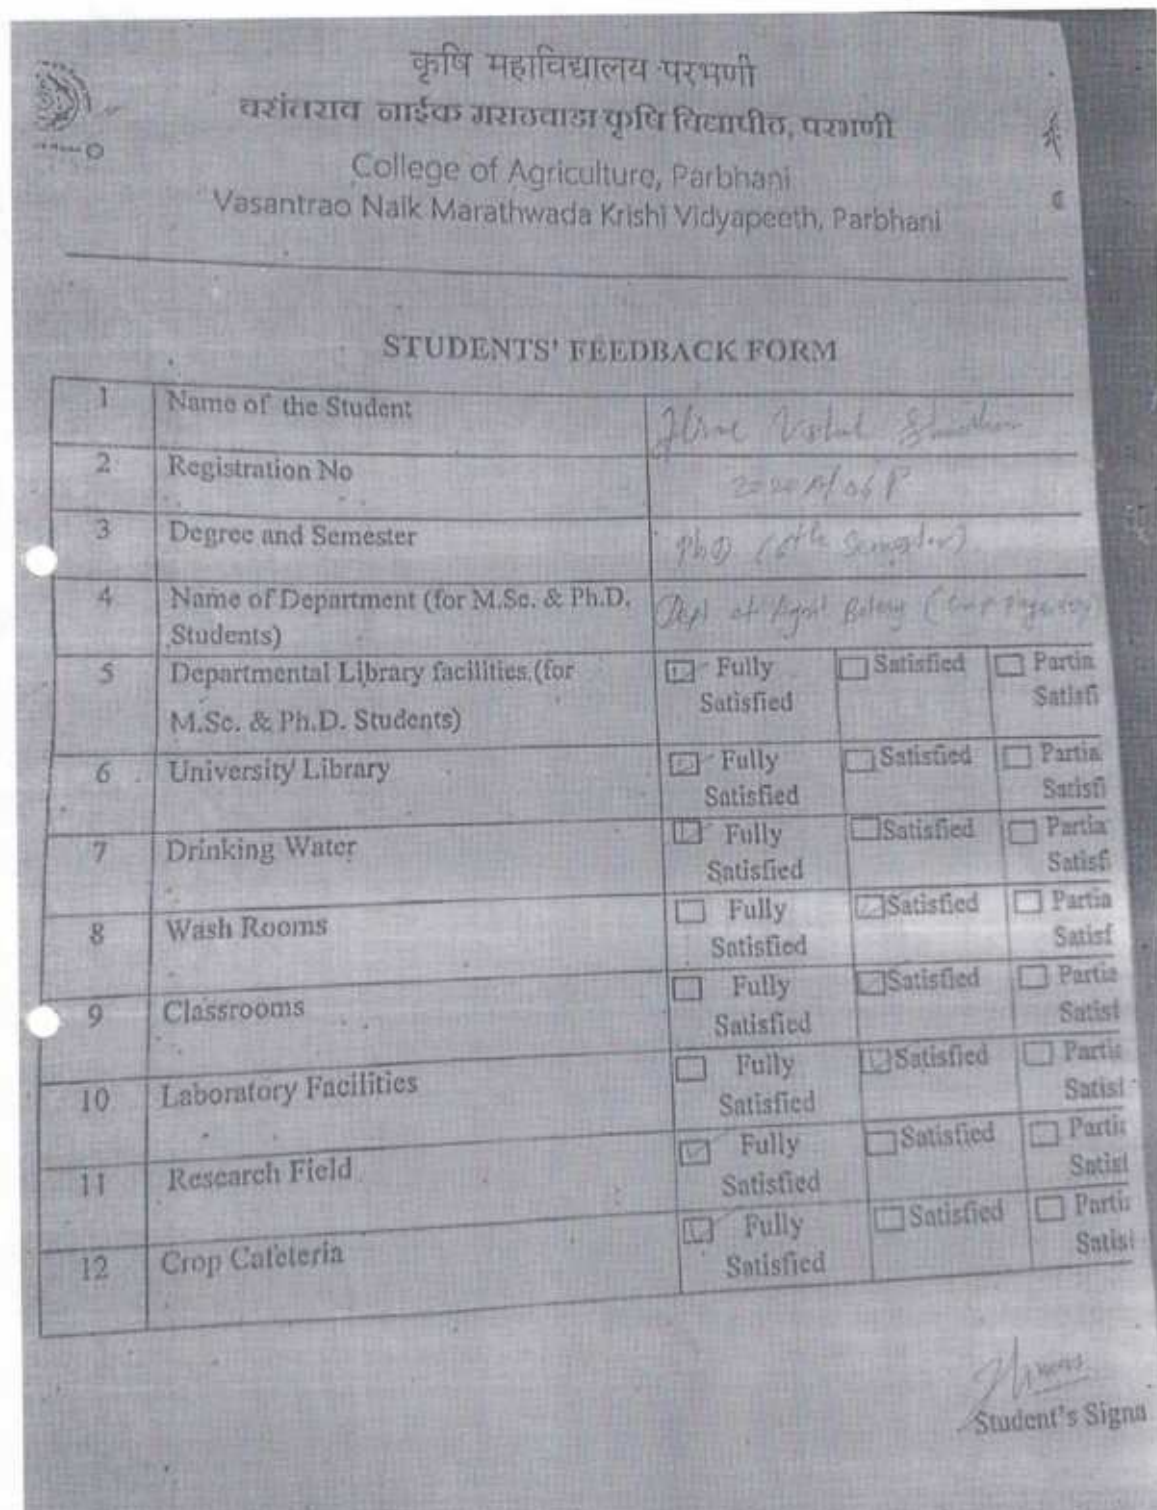 कृषि महाविद्यालय परभणी
वसंतराव नाईक मराठवाडा कृषि विद्यापीठ, परभणी
College of Agriculture, Parbhani
Vasantrao Naik Marathwada Krishi Vidyapeeth, Parbhani
STUDENTS' FEEDBACK FORM
1 Name of the Student
2 Registration No
3 Degree and Semester PhD (6th Semester)
4 Name of Department (for M.Sc. & Ph.D. Dept of Agril Botany
Students)
5 Departmental Library facilities (for Fully Satisfied Partia
M.Sc. & Ph.D. Students) Satisfied Satisfi
6 University Library Fully Satisfied Partia
Satisfied Satisfi
7 Drinking Water Fully Satisfied Partia
Satisfied Satisfi
8 Wash Rooms Fully Satisfied Partia
Satisfied Satisf
9 Classrooms Fully Satisfied Partia
Satisfied Satisf
10 Laboratory Facilities Fully Satisfied Partia
Satisfied Satisf
11 Research Field Fully Satisfied Partia
Satisfied Satisf
12 Crop Cafeteria Fully Satisfied Partia
Satisfied Satisf
Student's Signa